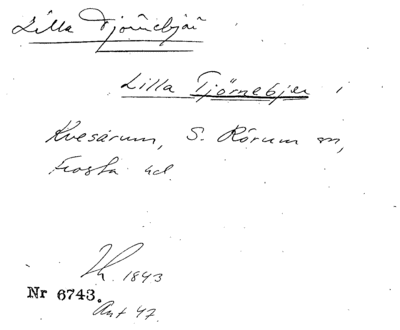 Lilla Tjörnebjär
Lilla Tjörnebjer i
Kvesarum, S. Rörum sn,
Frosta hd
Th. 1843
Nr 6743.
Ant 47